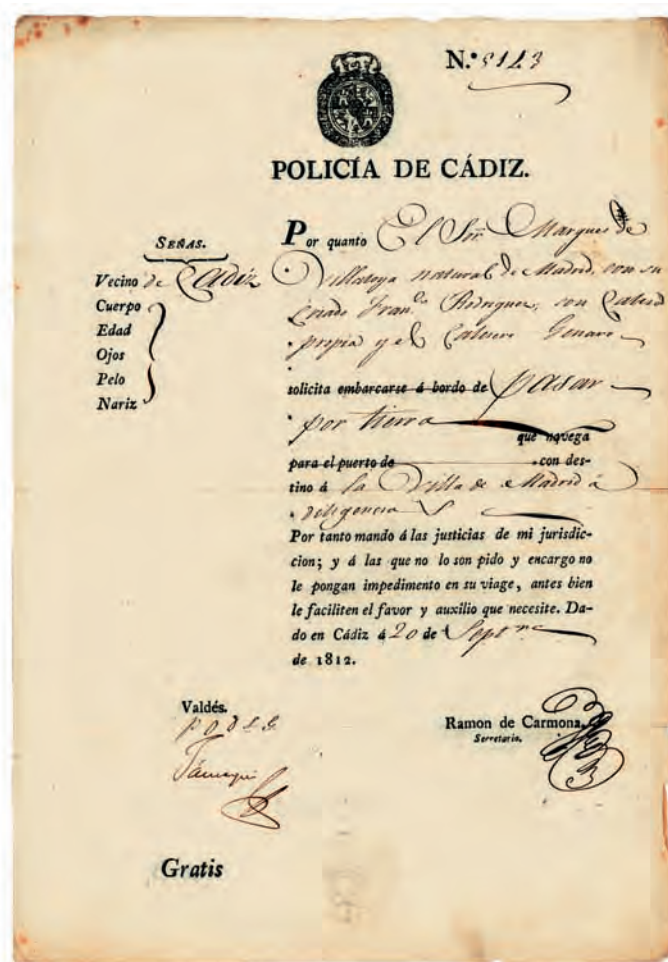 N.º 5143
POLICÍA DE CÁDIZ.
SEÑAS.
Vecino de Cadiz
Cuerpo
Edad
Ojos
Pelo
Nariz
Por quanto El Sor. Marques de
Villatoya natural de Madrid, con su
Criado Fran.co Rodriguez, con Calesa
propia y el Calesero Genaro
solicita embarcarse á bordo de pasar
por tierra
que navega
para el puerto de con des-
tino á la Villa de Madrid á
diligencia
Por tanto mando á las justicias de mi jurisdic-
cion; y á las que no lo son pido y encargo no
le pongan impedimento en su viage, antes bien
le faciliten el favor y auxilio que necesite. Da-
do en Cádiz á 20 de Septre
de 1812.
Valdés.
Ramon de Carmona.
Secretario.
Gratis